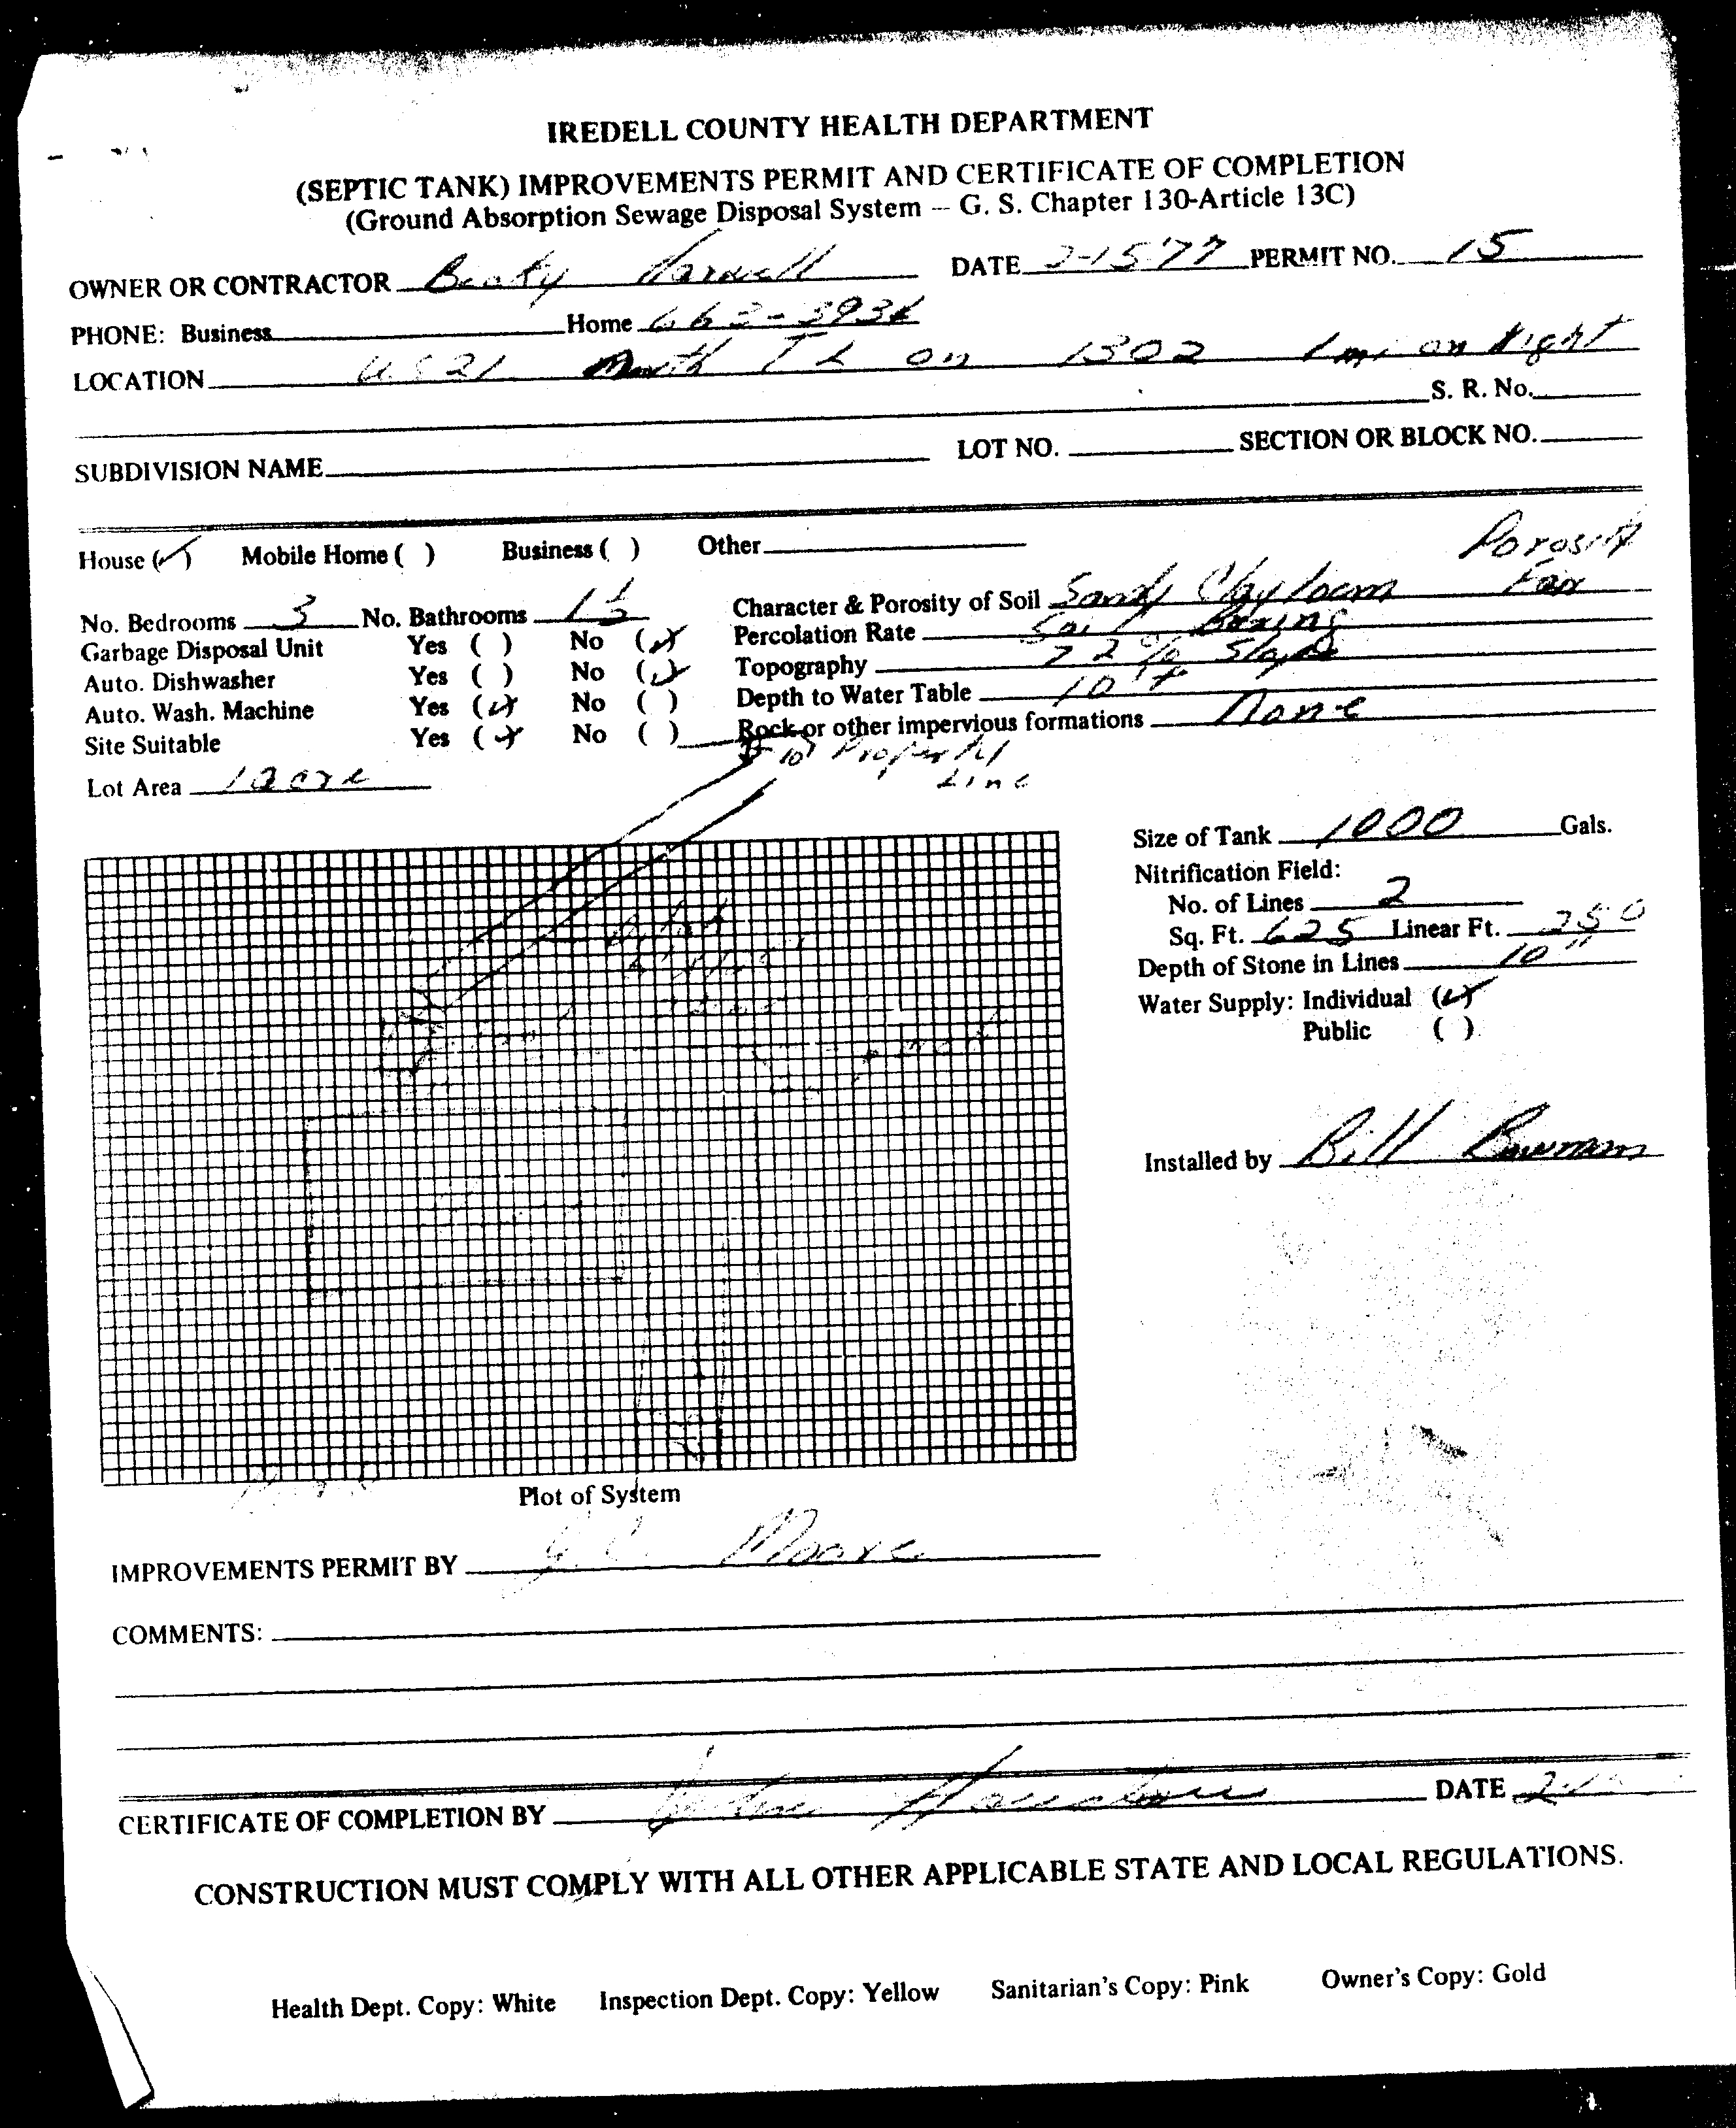 IREDELL COUNTY HEALTH DEPARTMENT
(SEPTIC TANK) IMPROVEMENTS PERMIT AND CERTIFICATE OF COMPLETION
(Ground Absorption Sewage Disposal System — G. S. Chapter 130-Article 13C)
OWNER OR CONTRACTOR Becky DATE 2-15-77 PERMIT NO. 15
PHONE: Business Home
LOCATION U.S 21 North T L on 1302 1 mi on Right
S. R. No.
SUBDIVISION NAME LOT NO. SECTION OR BLOCK NO.
House (✓) Mobile Home ( ) Business ( ) Other
Porosity
No. Bedrooms 3 No. Bathrooms 1½ Character & Porosity of Soil Sandy Clay loam Fair
Garbage Disposal Unit Yes ( ) No (✓) Percolation Rate Soil Boring
Auto. Dishwasher Yes ( ) No (✓) Topography 2% Slope
Auto. Wash. Machine Yes (✓) No ( ) Depth to Water Table 10 +
Site Suitable Yes (✓) No ( ) Rock or other impervious formations None
10' Property
Line
Lot Area 1 acre
Size of Tank 1000 Gals.
Nitrification Field:
No. of Lines 2
Sq. Ft. 625 Linear Ft. 250
Depth of Stone in Lines 10"
Water Supply: Individual (✓)
Public ( )
Installed by Bill Bowman
Plot of System
IMPROVEMENTS PERMIT BY Moore
COMMENTS:
CERTIFICATE OF COMPLETION BY DATE
CONSTRUCTION MUST COMPLY WITH ALL OTHER APPLICABLE STATE AND LOCAL REGULATIONS.
Health Dept. Copy: White Inspection Dept. Copy: Yellow Sanitarian's Copy: Pink Owner's Copy: Gold